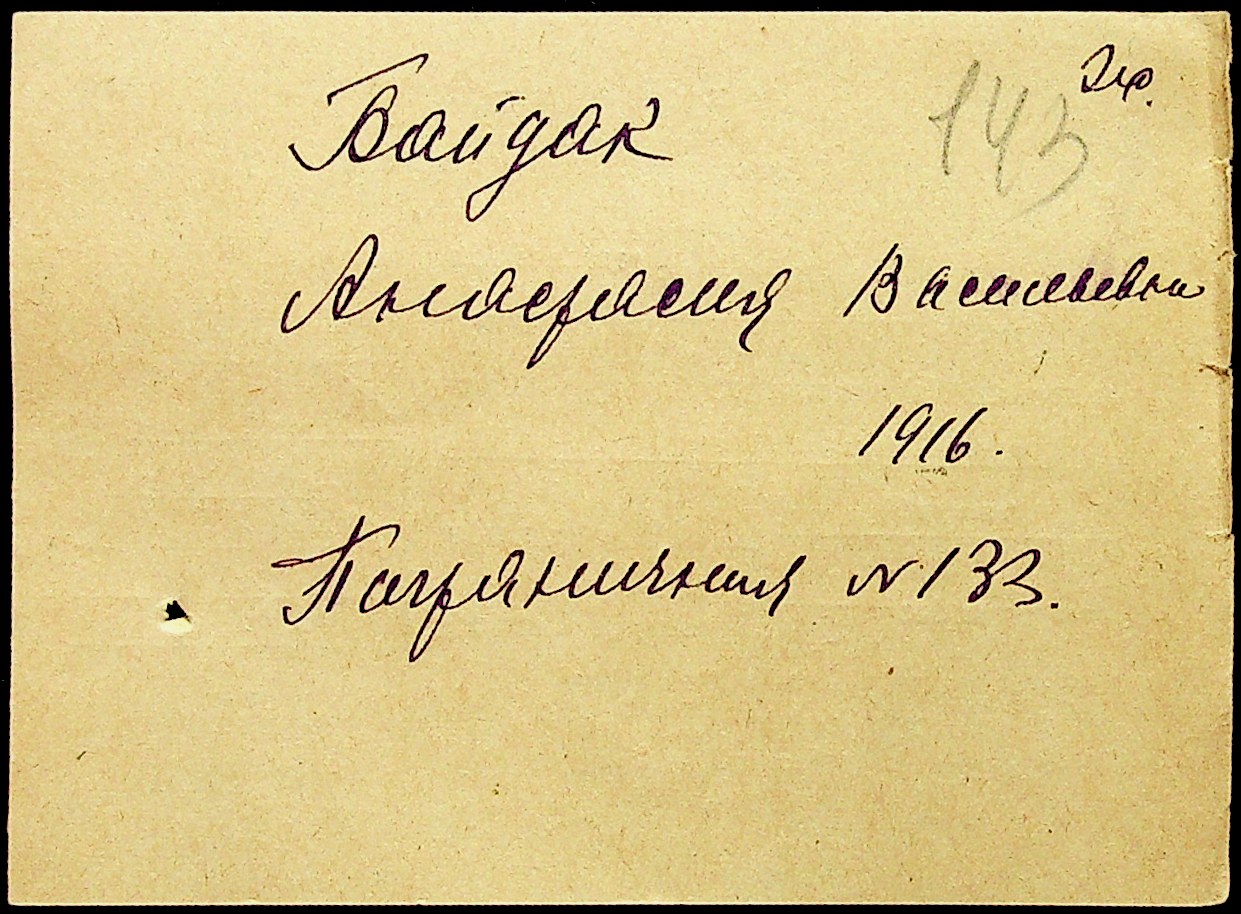 143
Байдак
Анастасия Васильевна
1916.
Пограничная № 133.